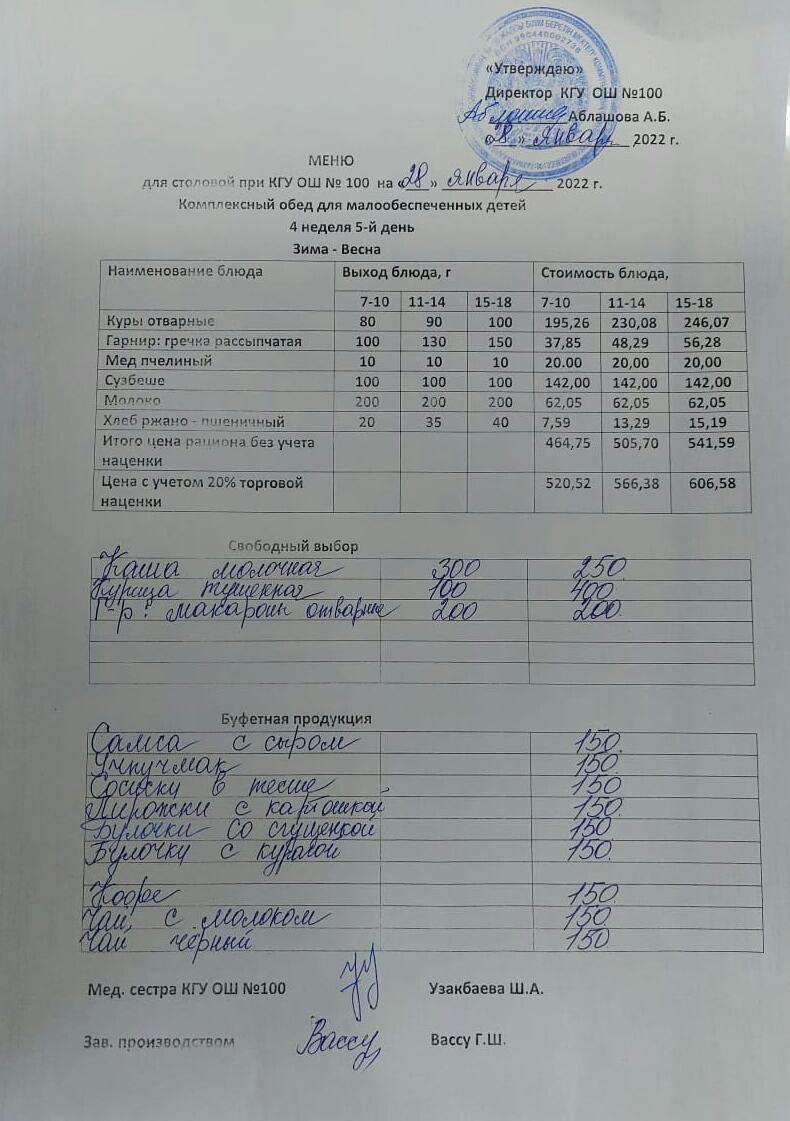 БСН 990440002738
«Утверждаю»
Директор КГУ ОШ №100
Аблашова А.Б.
«28» января 2022 г.
МЕНЮ
для столовой при КГУ ОШ № 100 на «28» января 2022 г.
Комплексный обед для малообеспеченных детей
4 неделя 5-й день
Зима - Весна
Наименование блюда Выход блюда, г Стоимость блюда,
7-10 11-14 15-18 7-10 11-14 15-18
Куры отварные 80 90 100 195,26 230,08 246,07
Гарнир: гречка рассыпчатая 100 130 150 37,85 48,29 56,28
Мед пчелиный 10 10 10 20.00 20,00 20,00
Сузбеше 100 100 100 142,00 142,00 142,00
Молоко 200 200 200 62,05 62,05 62,05
Хлеб ржано - пшеничный 20 35 40 7,59 13,29 15,19
Итого цена рациона без учета
наценки 464,75 505,70 541,59
Цена с учетом 20% торговой
наценки 520,52 566,38 606,58
Свободный выбор
Каша молочная 300 250.
Курица тушенная 100 400
Г-р: макароны отварные 200 200.
Буфетная продукция
Самса с сыром 150.
Учпучмак 150.
Сосиску в тесте 150
Пирожки с картошкой 150.
Булочки со сгущенкой 150
Булочку с курагой 150.
Кофре 150.
Чай, с молоком 150.
Чай чёрный 150.
Мед. сестра КГУ ОШ №100 Узакбаева Ш.А.
Зав. производством Вассу Вассу Г.Ш.